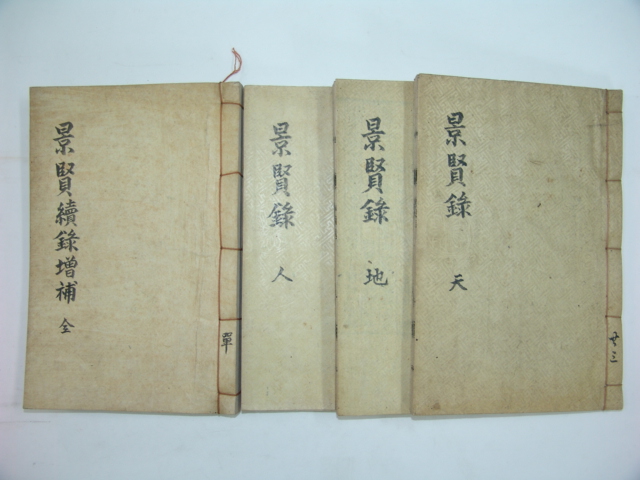 景賢錄
天
廿三
景賢錄
地
景賢錄
人
景賢續錄增補
全
單